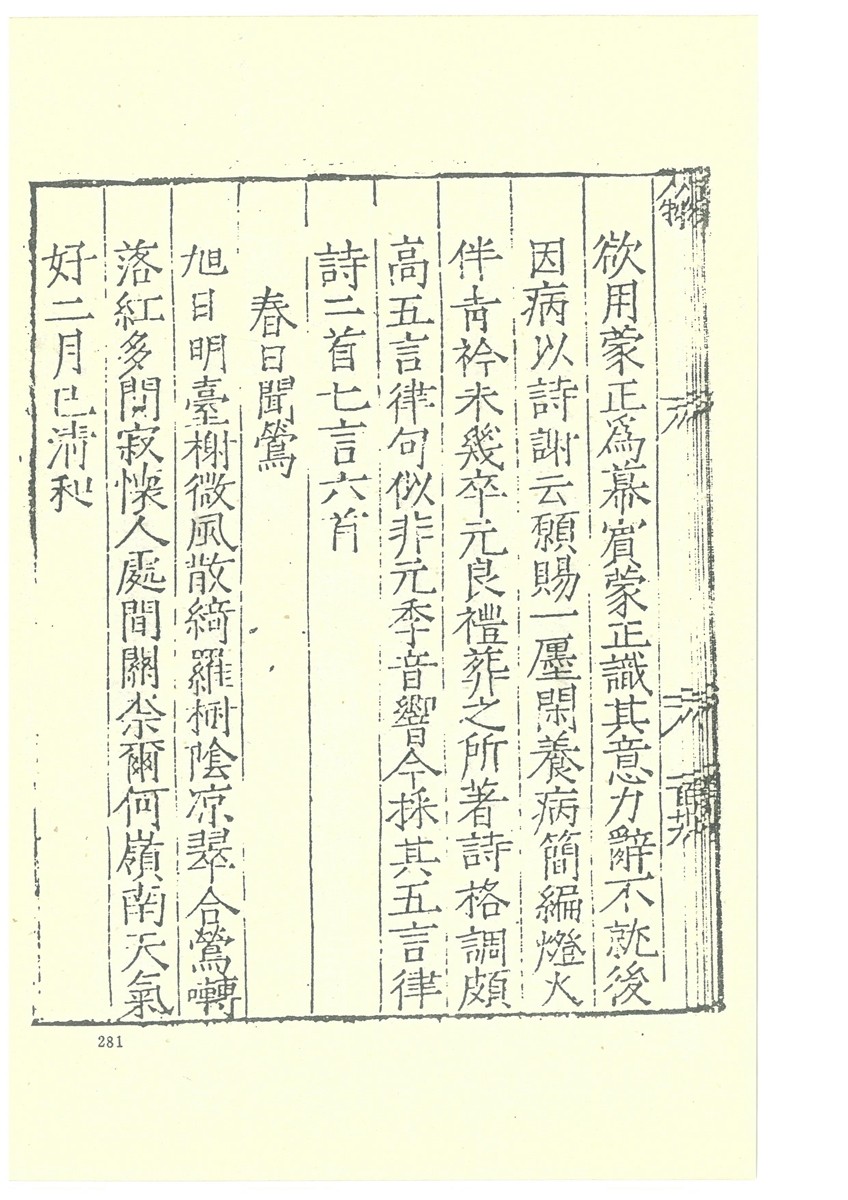 欲用蒙正爲幕賓蒙正識其意力辭不就後
因病以詩謝云願賜一廛閑養病簡編燈火
伴青衿未幾卒元良禮葬之所著詩格調頗
高五言律句似非元季音響今採其五言律
詩二首七言六首
春日聞鶯
旭日明臺榭微風散綺羅樹陰凉翠合鶯囀
落紅多閴寂懷人處間關柰爾何嶺南天氣
好二月已淸和
281